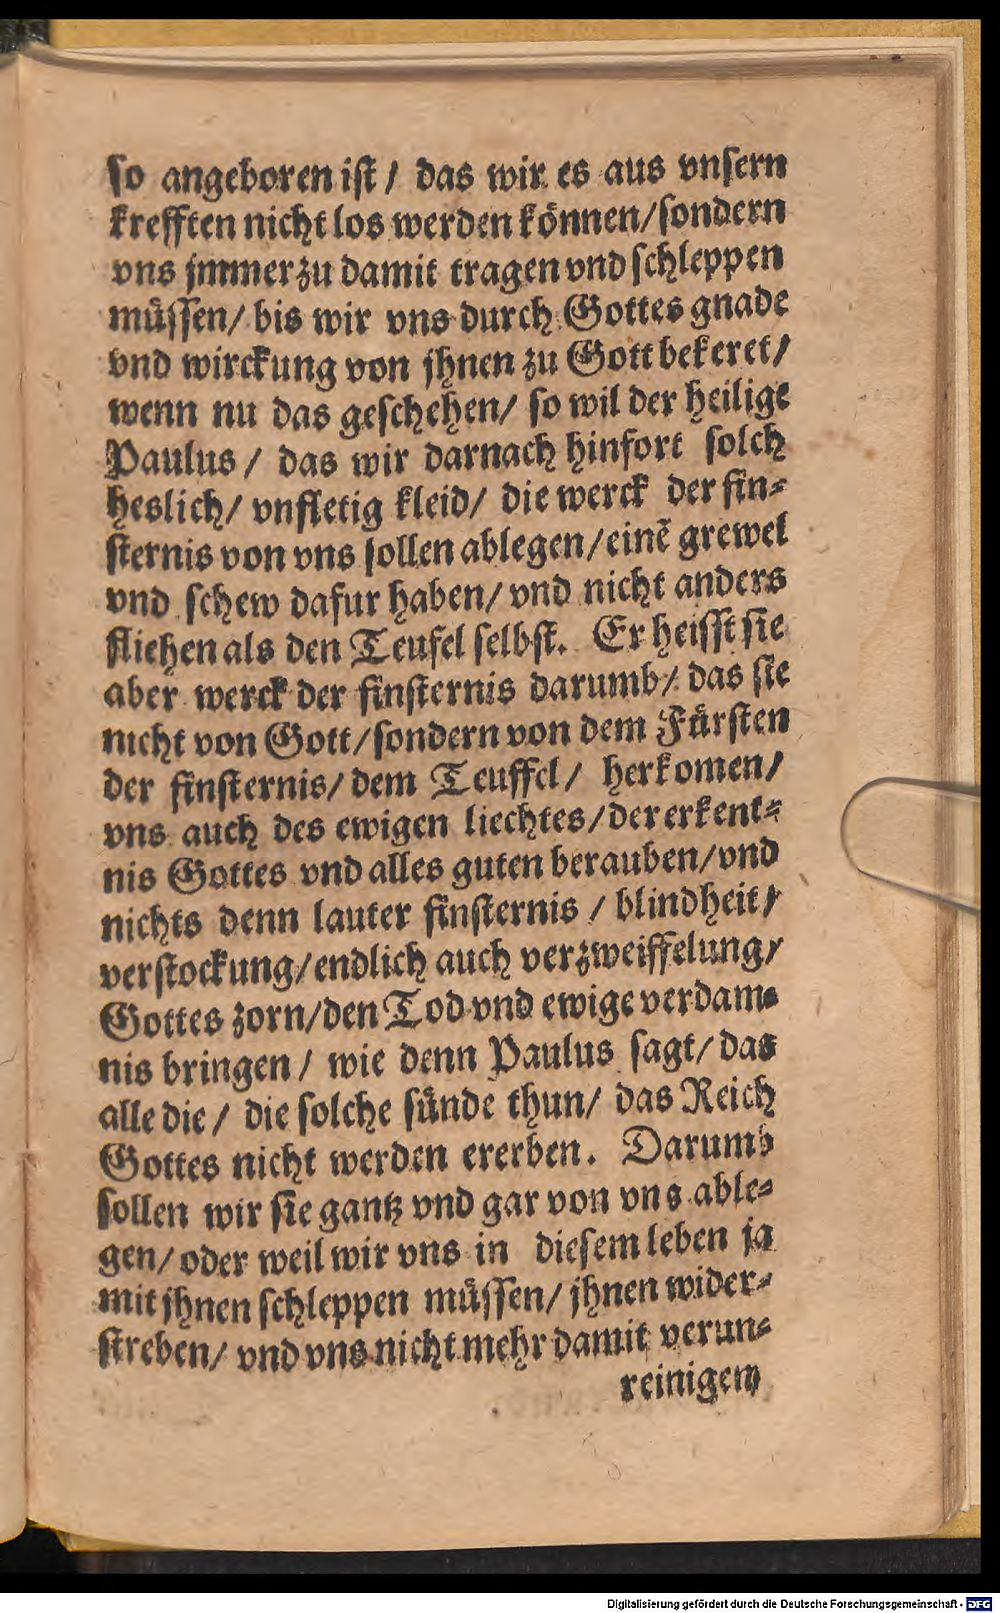 so angeboren ist / das wir es aus vnsern
krefften nicht los werden können/sondern
vns jmmerzu damit tragen vnd schleppen
müssen/ bis wir vns durch Gottes gnade
vnd wirckung von jhnen zu Gott bekeret/
wenn nu das geschehen/ so wil der heilige
Paulus / das wir darnach hinfort solch
heslich/ vnfletig kleid/ die werck der fin-
sternis von vns sollen ablegen/einē grewel
vnd schew dafur haben/ vnd nicht anders
fliehen als den Teufel selbst. Er heisst sie
aber werck der finsternis darumb/ das sie
nicht von Gott/sondern von dem Fürsten
der finsternis/ dem Teuffel / herkomen/
vns auch des ewigen liechtes/der erkent-
nis Gottes vnd alles guten berauben/vnd
nichts denn lauter finsternis / blindheit/
verstockung/endlich auch verzweiffelung/
Gottes zorn/den Tod vnd ewige verdam-
nis bringen / wie denn Paulus sagt/ das
alle die / die solche sünde thun/ das Reich
Gottes nicht werden ererben. Darumb
sollen wir sie gantz vnd gar von vns able-
gen/ oder weil wir vns in diesem leben ja
mit jhnen schleppen müssen/ jhnen wider-
streben/ vnd vns nicht mehr damit verun-
reinigen
Digitalisierung gefördert durch die Deutsche Forschungsgemeinschaft - DFG